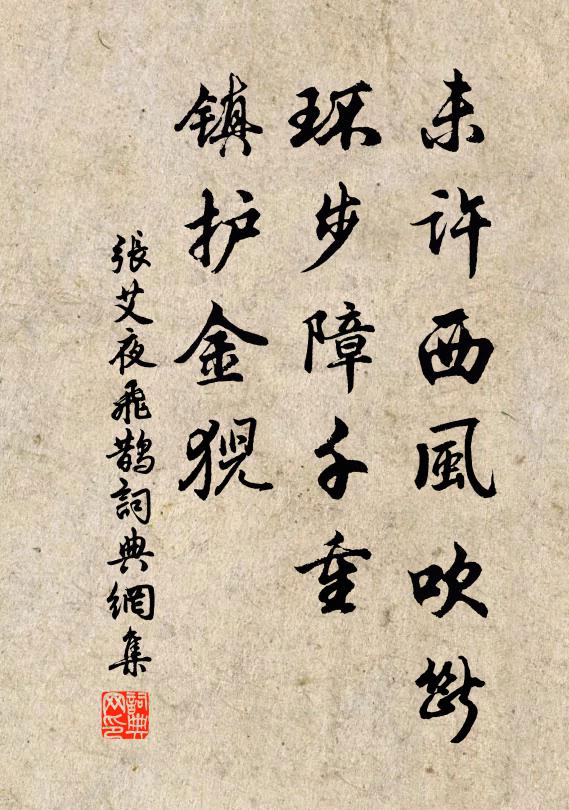 未许西風吹斷
环步障千重
镇护金猊
張艾夜飛鵲詞典網集
詞典网印